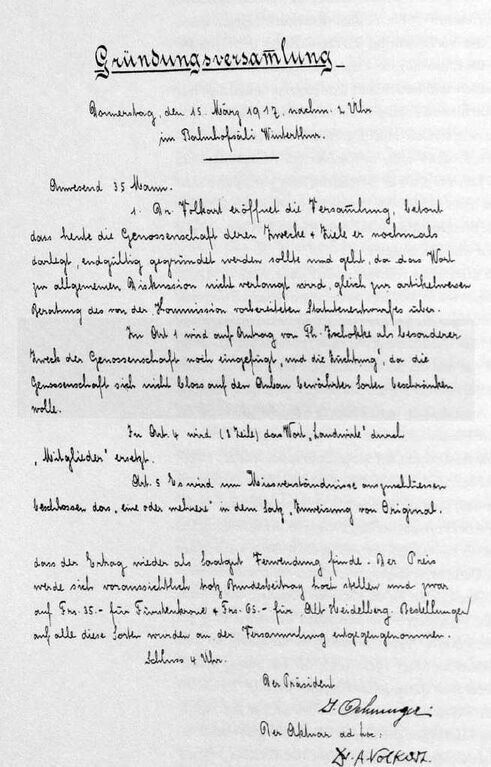 Gründungsversam̄lung
Donnerstag, den 15. März 1917 nachm. 2 Uhr
im Bahnhofsäli Winterthur.
Anwesend 35 Mann.
1. Dr. Volkart eröffnet die Versam̄lung, betont
dass heute die Genossenschaft deren Zwecke & Ziele er nochmals
darlegt, endgültig gegründet werden sollte und geht, da das Wort
zur allgemeinen Diskussion nicht verlangt wird, gleich zur artikelweisen
Beratung des von der Kommission vorbereiteten Statutenentwurfes über.
In Art 1 wird auf Antrag von Th. Zschokke als besonderer
Zweck der Genossenschaft noch eingefügt „und die Züchtung", da die
Genossenschaft sich nicht bloss auf den Anbau bewährter Sorten beschränken
wolle.
In Art. 4 wird (1 Zeile) das Wort „Landwirte" durch
„Mitglieder" ersetzt.
Art. 5 Es wird um Missverständnisse auszuschliessen
beschlossen das „eine oder mehrere" in dem Satz „Zuweisung von Original.
dass der Ertrag wieder als Saatgut Verwendung finde. Der Preis
werde sich voraussichtlich trotz Bundesbeitrag hoch stellen und zwar
auf Frs. 35.- für Fürstenkrone & Frs. 65.- für Alt Heidelberg. Bestellungen
auf alle diese Sorten wurden an der Versammlung entgegengenommen.
Schluss 4 Uhr.
Der Präsident
J. Oehninger
Der Aktuar ad hoc:
Dr. A. Volkart.